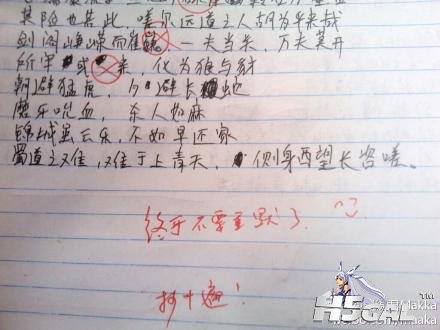 其险也若此 嗟尔远道之人胡为乎来哉
剑阁峥嵘而崔 一夫当关,万夫莫开
所守 或 亲,化为狼与豺
朝避猛虎,夕避长 蛇
磨牙吮血,杀人如麻
锦城虽云乐,不如早还家
蜀道之难,难于上青天, 侧身西望长咨嗟。
终于不要重默了. ^-^
抄十遍!
H5GAL™